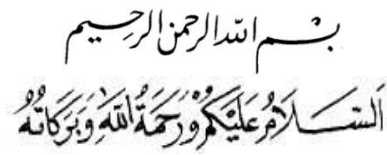 بسم الله الرحمن الرحيم
السَّلَامُ عَلَيْكُمْ وَرَحْمَةُ اللَّهِ وَبَرَكَاتُهُ